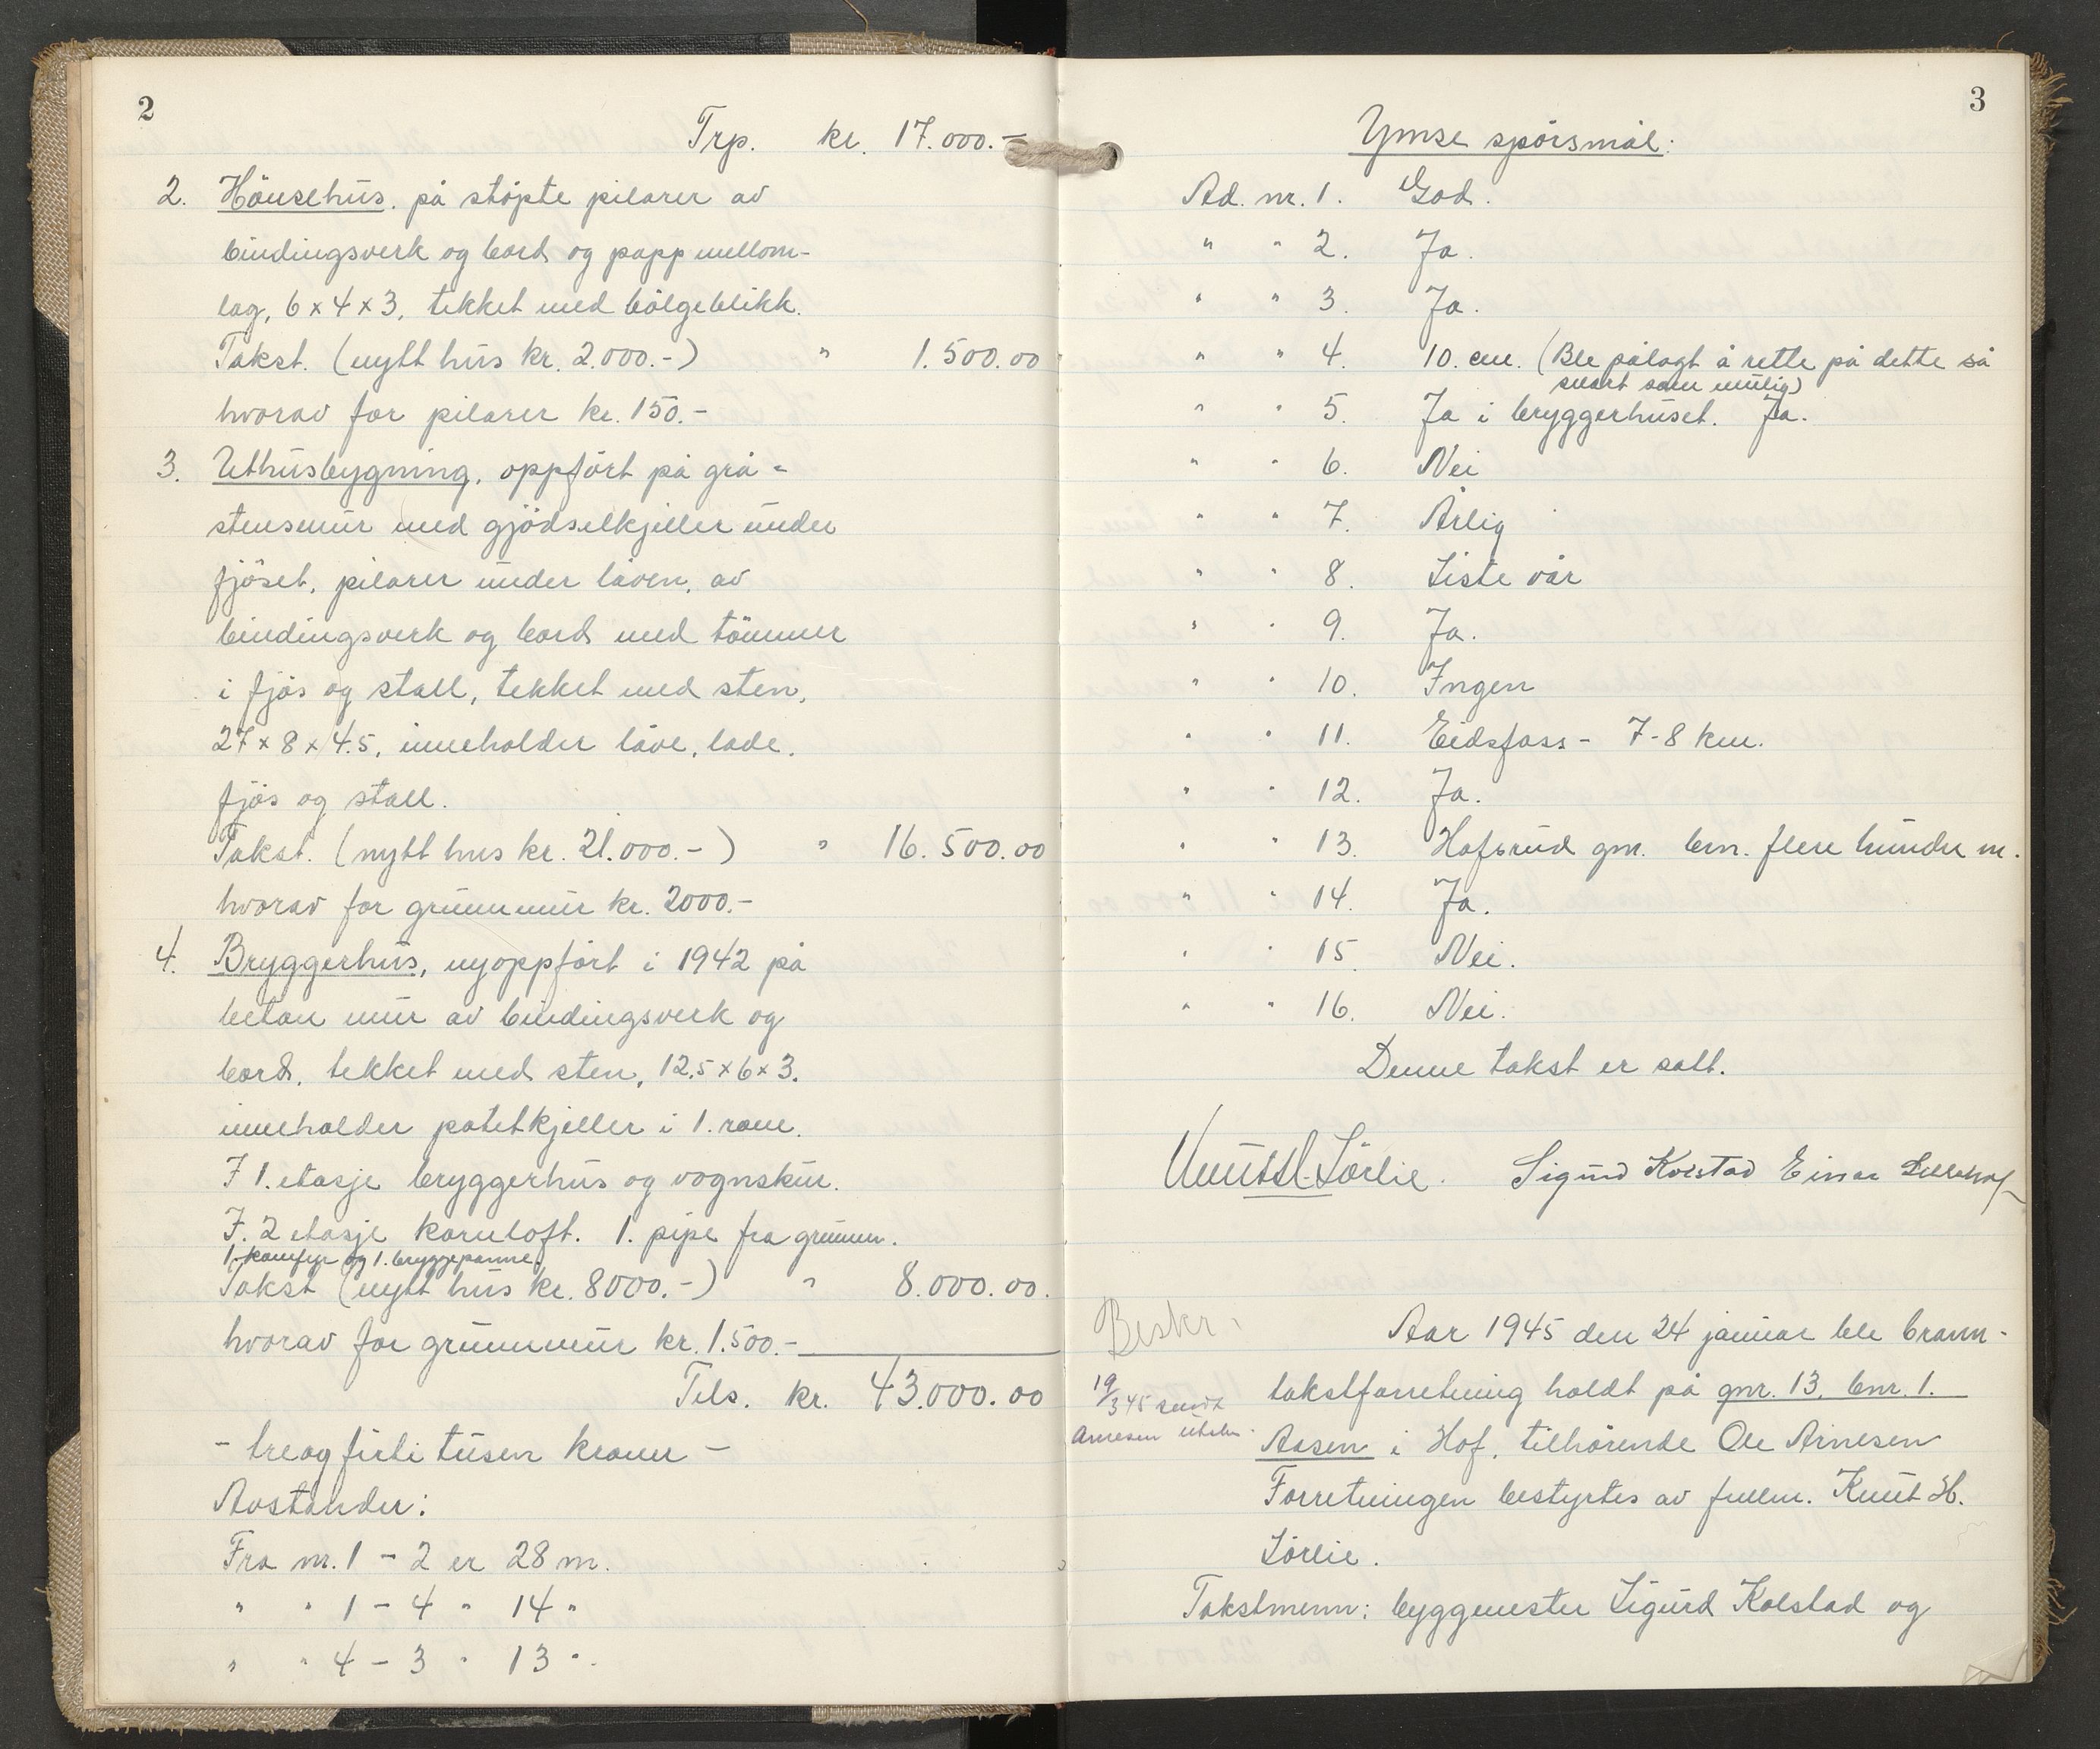 2
Trp. kr. 17.000.-
2. Hönsehus. på støpte pilarer av
bindingsverk og bord og papp mellom-
lag, 6 x 4 x 3, tekket med bölgeblikk.
Takst. (nytt hus kr. 2.000.-) " 1.500.00
hvorav for pilarer kr. 150.-
3. Uthusbygning, oppfört på grå-
stensmur med gjödselkjeller under
fjöset, pilarer under låven, av
bindingsverk og bord med tömmer
i fjös og stall, tekket med sten,
27 x 8 x 4.5, inneholder låve, lade,
fjös og stall.
Takst. (nytt hus kr. 21.000.-) " 16.500.00
hvorav for grunnmur kr. 2000.-
4. Bryggerhus, nyoppfört i 1942 på
beton mur av bindingsverk og
bord, tekket med sten, 12.5 x 6 x 3.
inneholder potetkjeller i 1. rom.
I 1. etasje bryggerhus og vognskur.
I. 2 etasje kornloft. 1. pipe fra grunnen.
1. komfyr og 1. bryggepanne.
Takst (nytt hus kr. 8000.-) " 8.000.00.
hvorav for grunnmur kr. 1.500.-
Tils. kr. 43.000.00
- treogførti tusen kroner -
Avstander:
Fra nr. 1 - 2 er 28 m.
" " 1 - 4 " 14 "
" " 4 - 3 " 13 ".
3
Ymse spörsmål:
Ad. nr. 1. God.
" " 2. Ja.
" " 3. Ja.
" " 4. 10. cm. (Ble pålagt å rette på dette så
snart som mulig)
" " 5. Ja i bryggerhuset. Ja.
" " 6. Nei
" " 7. Årlig
" " 8. Siste vår
" " 9. Ja.
" " 10. Ingen
" " 11. Eidsfoss - 7-8 km.
" " 12. Ja.
" " 13. Hofsrud gnr. bnr. flere hundre m.
" " 14. Ja.
" " 15. Nei.
" " 16. Nei.
Denne takst er satt.
Knut H. Sörlie. Sigurd Kolstad Einar
Beskr.
Aar 1945 den 24 januar ble brann-
takstforretning holdt på gnr. 13. bnr. 1.
19/3 45 sendt
Arnesen
Aasen i Hof, tilhörende Ole Arnesen
Forretningen bestyrtes av fullm. Knut H.
Sörlie.
Takstmenn: byggmester Sigurd Kolstad og